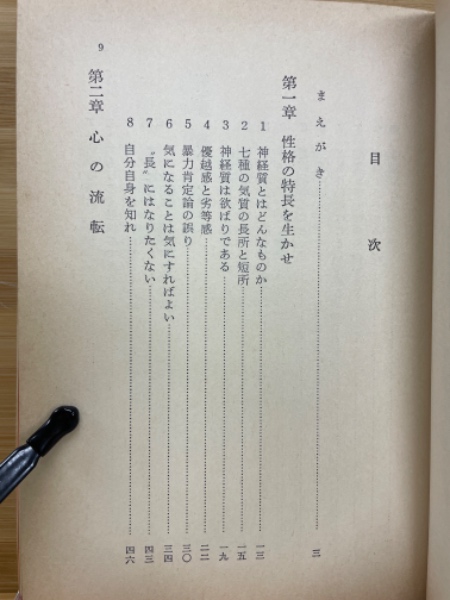 目次
まえがき……三
第一章 性格の特長を生かせ
1 神経質とはどんなものか……一三
2 七種の気質の長所と短所……一五
3 神経質は欲ばりである……一九
4 優越感と劣等感……二二
5 暴力肯定論の誤り……三〇
6 気になることは気にすればよい……三四
7 〝長〟にはなりたくない……四三
8 自分自身を知れ……四六
第二章 心の流転
9